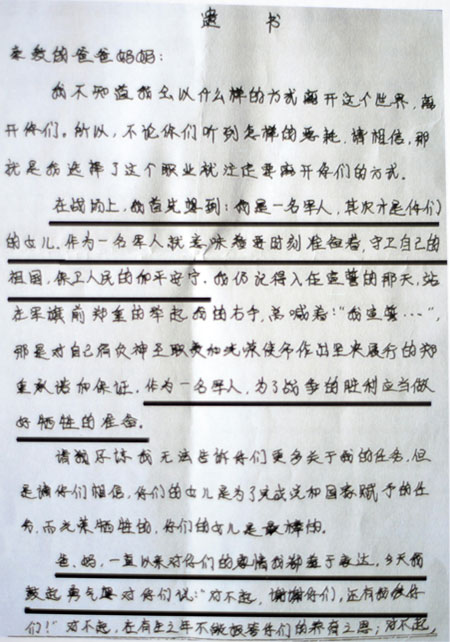 遗 书
亲敬的爸爸妈妈：
我不知道我会以什么样的方式离开这个世界，离
开你们。所以，不论你们听到怎样的恶耗，请相信，那
就是我选择了这个职业就注定要离开你们的方式。
在战场上，我首先想到：我是一名军人，其次才是你们
的女儿。作为一名军人就意味着要时刻准备着，守卫自己的
祖国，保卫人民的和平安宁。我仍记得入伍宣誓的那天，站
在军旗前郑重的举起我的右手，高喊着："我宣誓……"，
那是对自己肩负神圣职责和光荣使命作出坚决履行的郑
重承诺和保证。作为一名军人，为了战争的胜利应当做
好牺牲的准备。
请我原谅我无法告诉你们更多关于我的任务，但
是请你们相信，你们的女儿是为了完成党和国家赋予的任
务，而光荣牺牲的，你们的女儿是最棒的。
爸、妈，一直以来对你们的感情我都羞于表达，今天我
鼓起勇气要对你们说："对不起，谢谢你们，还有我爱你
们！"对不起，在有生之年不能报答你们的养育之恩；对不起，